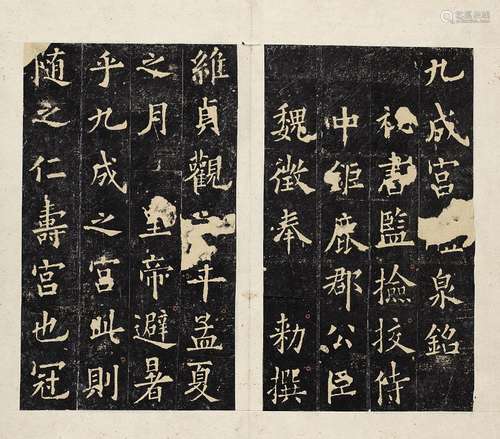 九成宫泉銘
祕書監撿挍侍
中鉅鹿郡公臣
魏徵奉 勅撰
維貞觀六年孟夏
之月 皇帝避暑
乎九成之宫此則
随之仁壽宫也冠